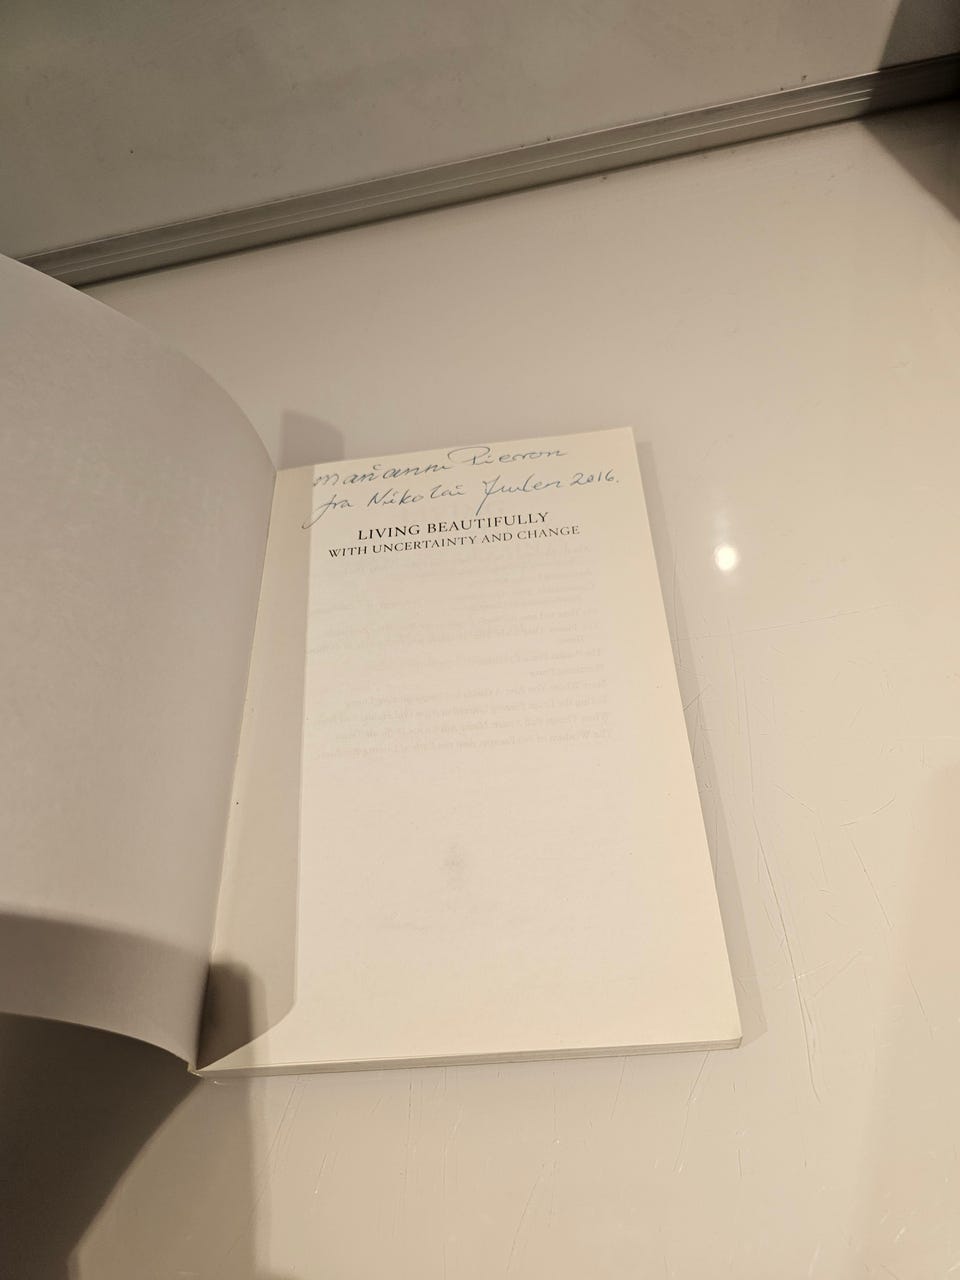 Marianne Pierron
fra Nikolai Julen 2016.
LIVING BEAUTIFULLY
WITH UNCERTAINTY AND CHANGE